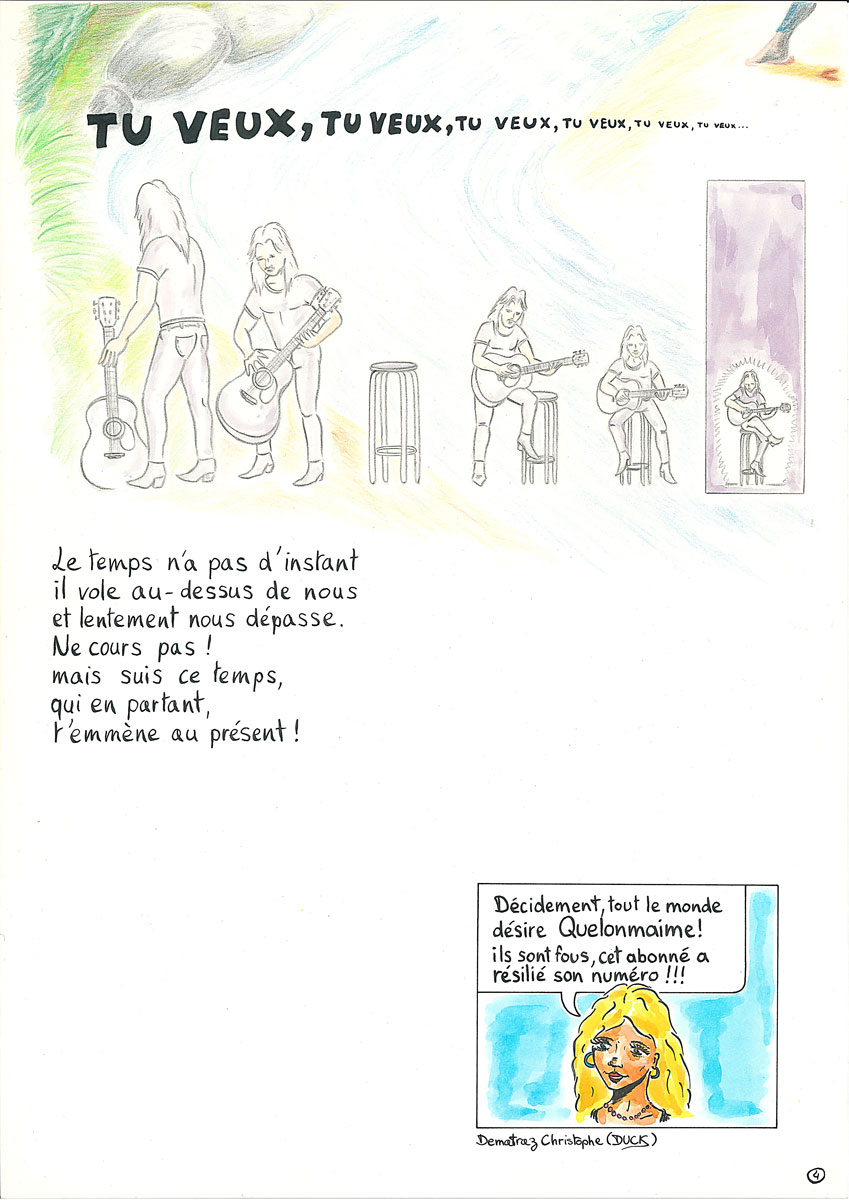 TU VEUX, TU VEUX, TU VEUX, TU VEUX, TU VEUX, TU VEUX...
Le temps n'a pas d'instant
il vole au-dessus de nous
et lentement nous dépasse.
Ne cours pas !
mais suis ce temps,
qui en partant,
t'emmène au présent !
Décidement, tout le monde
désire Quelonmaime !
ils sont fous, cet abonné a
résilié son numéro !!!
Dematraz Christophe (DUCK)
4